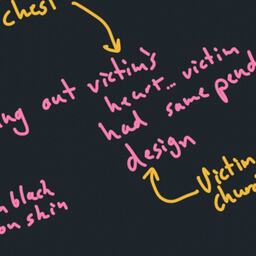 chest
ing out victim's
heart... victim
had same pend
design
Victim
chur
n black
on skin